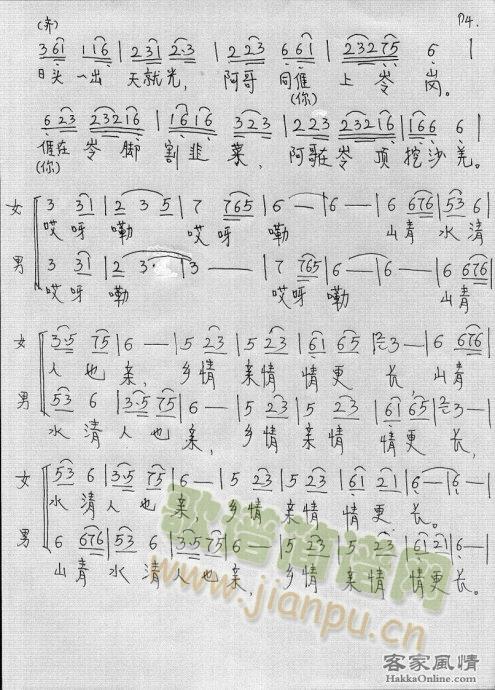 (齐) P4.
3 6 1 1 1 6 | 2 3 1 2·3 | 2 2 3 6 6 1 | 2 3 2 7 5 6 |
日头一出 天就光, 阿哥 同𠊎 上岺岗。
(你)
6 2 3 2 3 2 1 6 | 1 6 1 6 3 2 3 | 2 2 3 2 3 2 1 6 | 1 6 6 6 |
𠊎在岺脚 割韭菜, 阿哥在岺顶挖沙羌。
(你)
女 3 3 1 | 2 3 5 | 7 7 6 5 | 6 — | 6 — | 6 6 7 6 | 5 3 6 |
哎呀 嘞 哎呀 嘞 山青 水清
男 3 3 1 | 2 3· | 3 — | 7 7 6 5 | 6 — | 6 — | 6 6 7 6 |
哎呀 嘞 哎呀 嘞 山青
女 3·5 7 5 | 6 — | 5 2 3 | 5 2 3 | 6 1 6 5 | 3 — | 6 6 7 6 |
人也亲, 乡情 亲情 情更 长, 山青
男 5 3 6 | 3·5 7 5 | 6 — | 5 2 3 | 5 2 3 | 6 1 6 5 | 3 — |
水清人也亲, 乡情 亲情 情更长,
女 5 3 6 | 3·5 7 5 | 6 — | 5 2 3 | 5 2 3 | 6 1 2 1 | 6 — | 6 — |
水清人也亲, 乡情 亲情 情更 长。
男 6 6 7 6 | 5 3 6 | 3·5 7 5 | 6 — | 5 2 3 | 5 2 3 | 6 1 2 1 | 6 — |
山青 水清人也亲, 乡情 亲情 情更长。
歌谱简谱网
www.jianpu.cn
客家風情
HakkaOnline.com